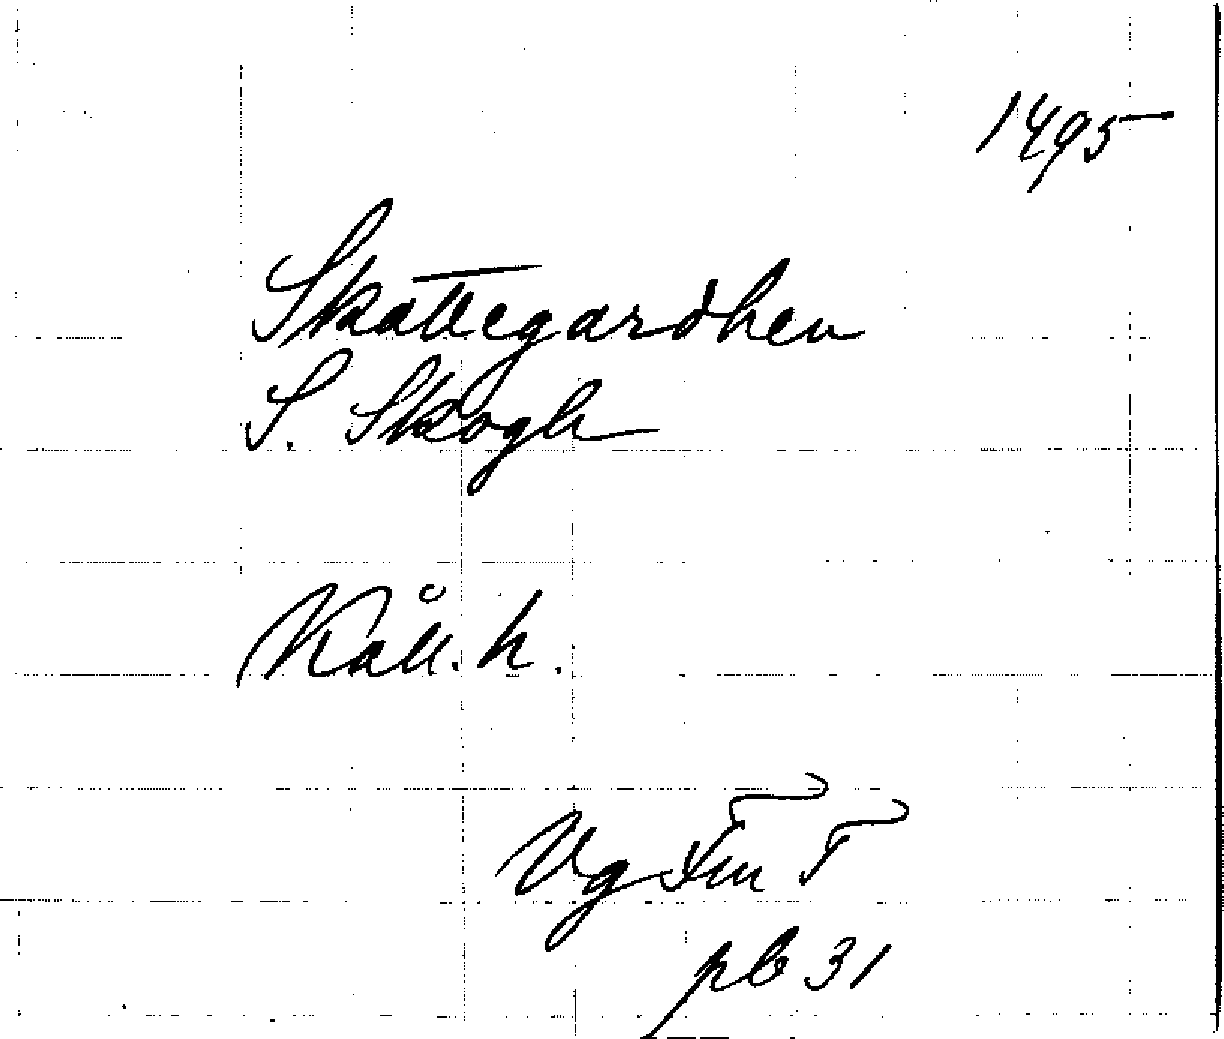 1495
Skattegardhen
S. Skogh
Kåll. h.
Vg Fmt T
pb 31